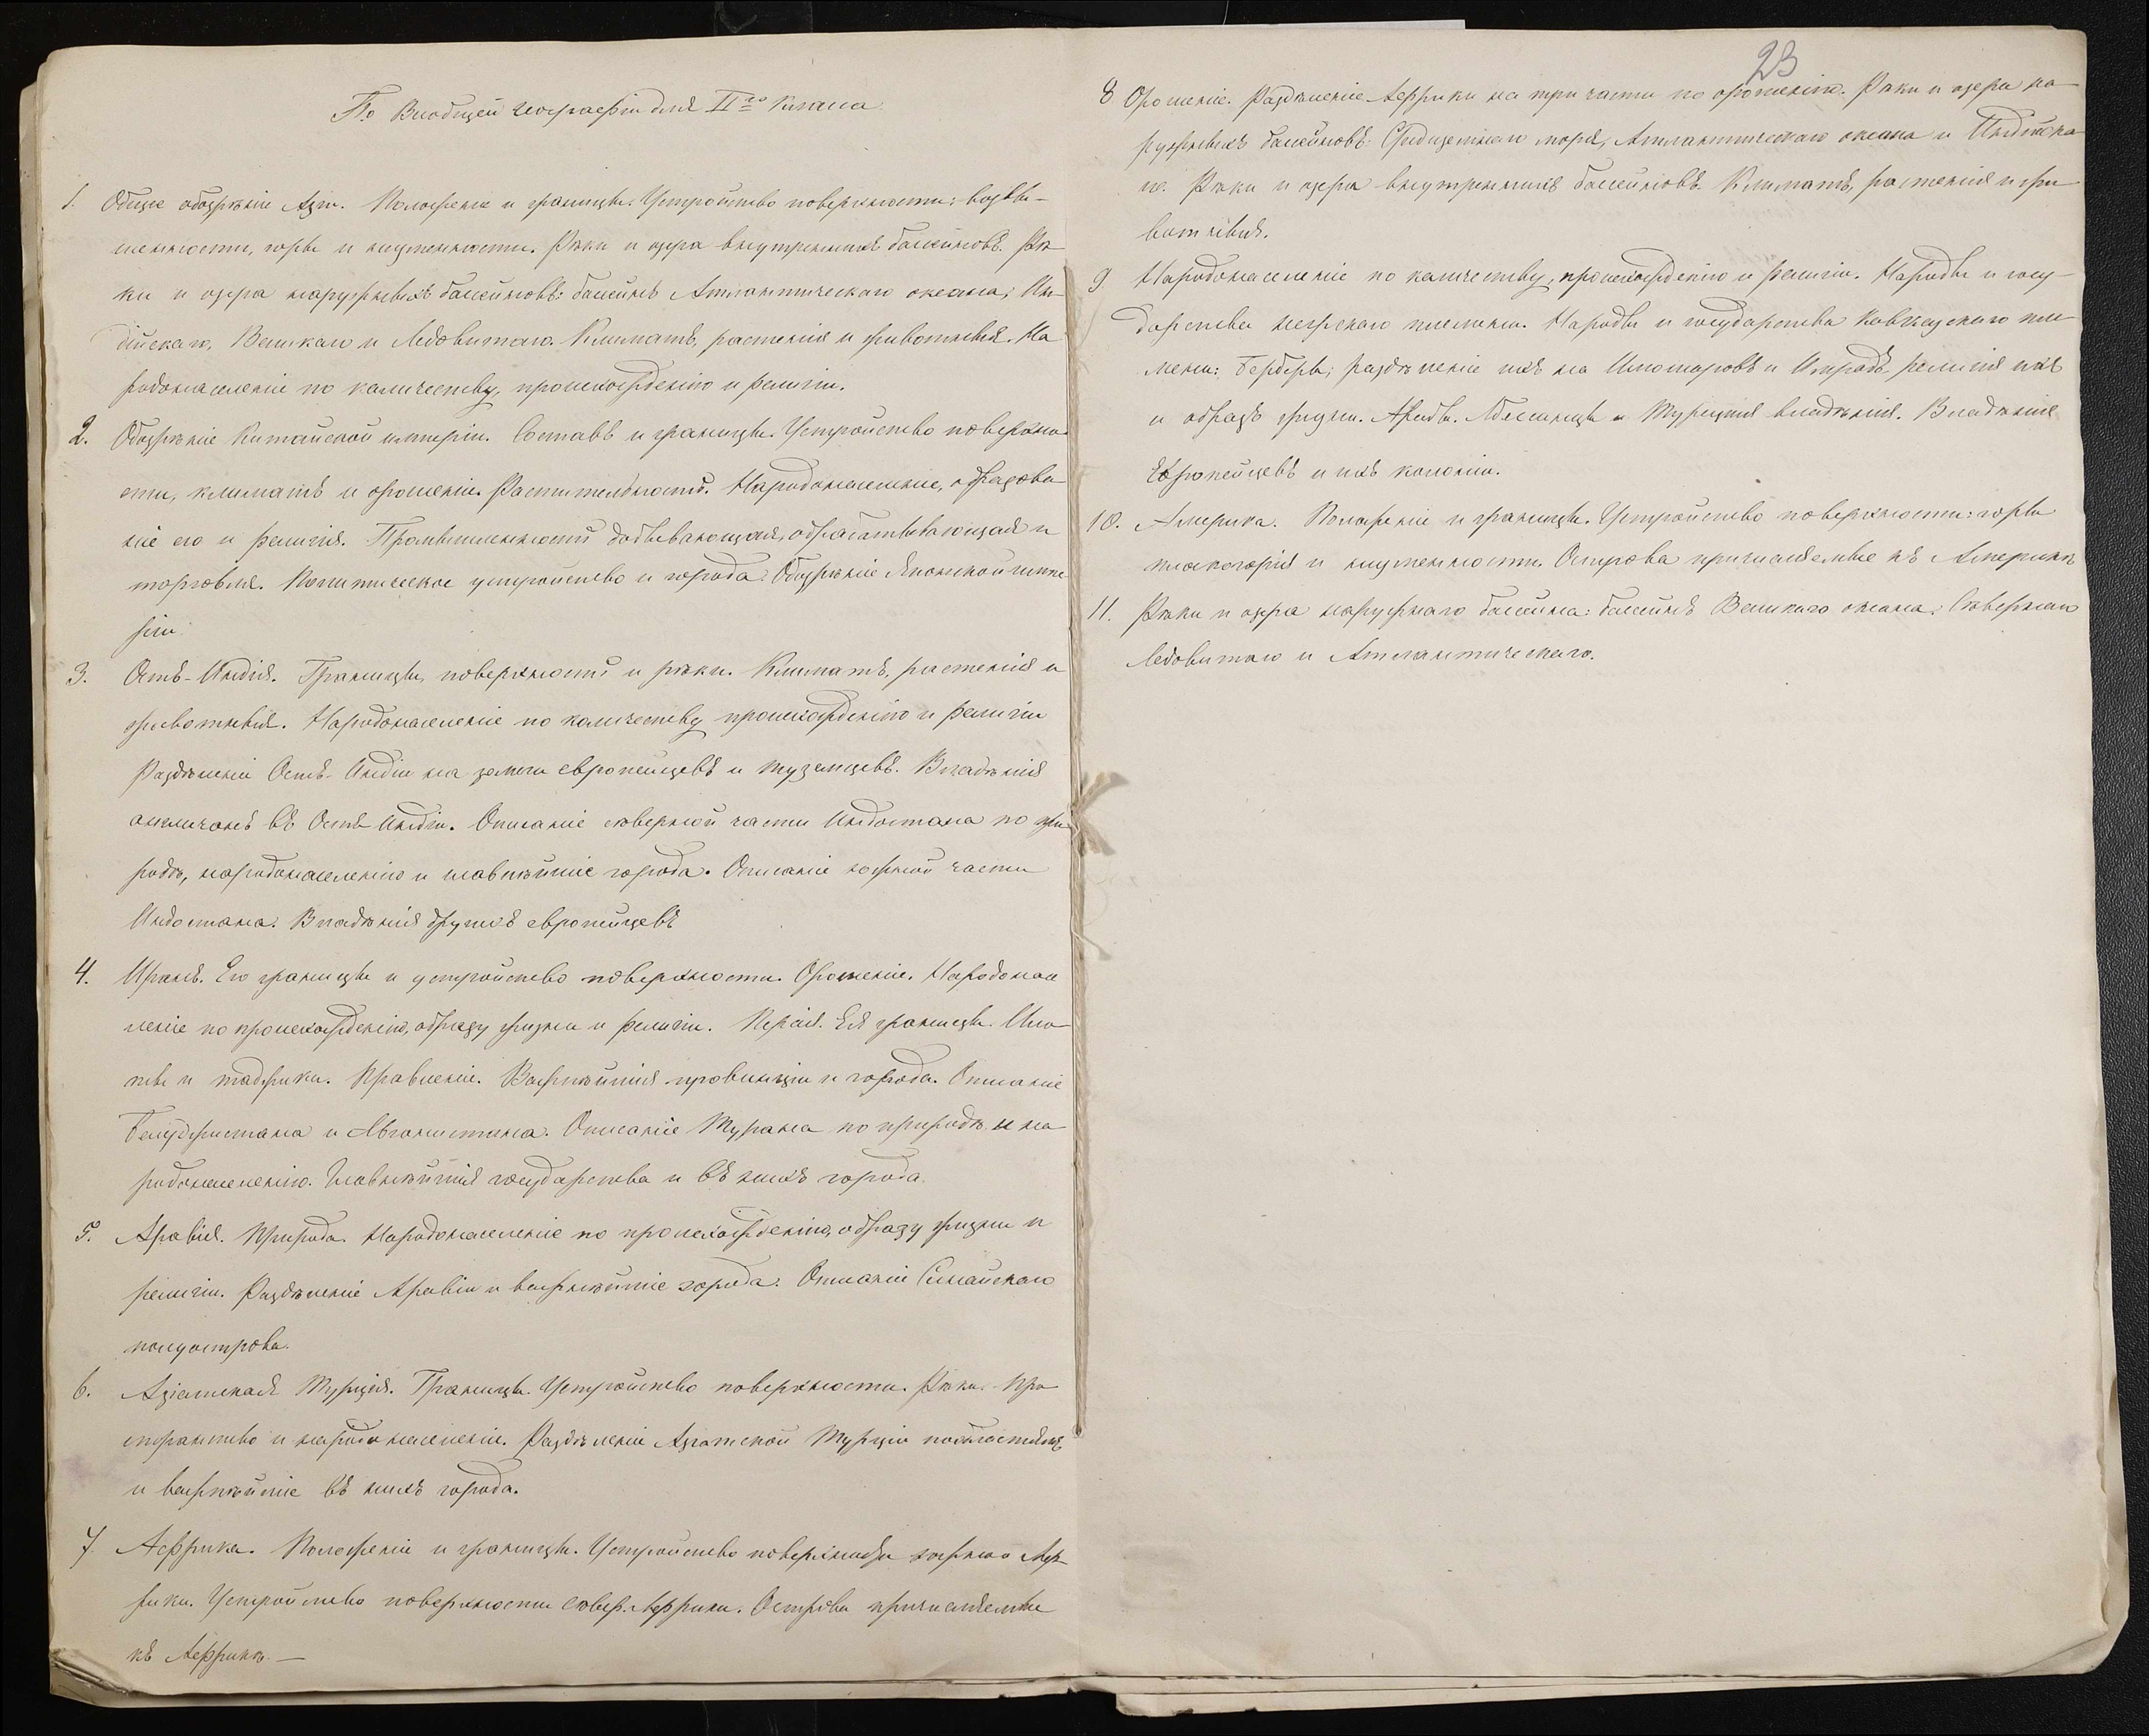 По Всеобщей географіи для II го Класса.
1. Общее обозрѣніе Азіи. Положеніе и границы. Устройство поверхности: возвы-
шенности, горы и низменности. Рѣки и озера внутреннихъ бассейновъ. Рѣ-
ки и озера наружныхъ бассейновъ: бассейнъ Атлантическаго океана, Ин-
дійскаго, Великаго и Ледовитаго. Климатъ, растенія и животныя. На
родонаселеніе по количеству, происхожденію и религіи.
2. Обозрѣніе Китайской имперіи. Составъ и границы. Устройство поверхно-
сти, климатъ и орошеніе. Растительность. Народонаселеніе, образова-
ніе его и религія. Промышленность добывающая, обработывающая и
торговля. Политическое устройство и города. Обозрѣніе Японской импе-
ріи.
3. Остъ-Индія. Границы, поверхность и рѣки. Климатъ, растенія и
животныя. Народонаселеніе по количеству происхожденію и религіи
Раздѣленіе Остъ-Индіи на земли европейцевъ и туземцевъ. Владѣнія
англичанъ въ Остъ Индіи. Описаніе сѣверной части Индостана по при
родѣ, народонаселенію и главнѣйшіе города. Описаніе южной части
Индостана. Владѣнія другихъ европейцевъ
4. Иранъ. Его границы и устройство поверхности. Орошеніе. Народонасе
леніе по происхожденію, образу жизни и религіи. Персія. Ея границы. Или-
ты и таджики. Правленіе. Важнѣйшія провинціи и города. Описаніе
Белуджистана и Авганистана. Описаніе Турана по природѣ и на
родонаселенію. Главнѣйшія государства и въ нихъ города.
5. Аравія. Природа. Народонаселеніе по происхожденію, образу жизни и
религіи. Раздѣленіе Аравіи и важнѣйшіе города. Описаніе Синайскаго
полуострова.
6. Азіатская Турція. Границы. Устройство поверхности. Рѣки. Про
странство и народонаселеніе. Раздѣленіе Азіатской Турціи по областямъ
и важнѣйшіе въ нихъ города.
7. Аффрика. Положеніе и границы. Устройство поверхности южной Аф-
рики. Устройство поверхности сѣвер. Аффрики. Острова причисляемые
къ Аффрикѣ. —
23
8 Орошеніе. Раздѣленіе Аффрики на три части по орошенію. Рѣки и озера на-
ружныхъ бассейновъ: Средиземнаго моря, Атлантическаго океана и Индійска
го. Рѣки и озера внутреннихъ бассейновъ. Климатъ, растенія и жи-
вотныя.
9 Народонаселеніе по количеству, происхожденію и религіи. Народы и госу-
дарства негрскаго племени. Народы и государства Кавказскаго пле-
мени: Берберы; раздѣленіе ихъ на религія ихъ
и образъ жизни. Арабы. Абессинцы и Турецкія владѣнія. Владѣнія
Европейцевъ и ихъ колоніи.
10. Америка. Положеніе и границы. Устройство поверхности: горы
плоскогорія и низменности. Острова причисляемые къ Америкѣ
11. Рѣки и озера наружнаго бассейна: бассейнъ Великаго океана, Сѣвернаго
Ледовитаго и Атлантическаго.